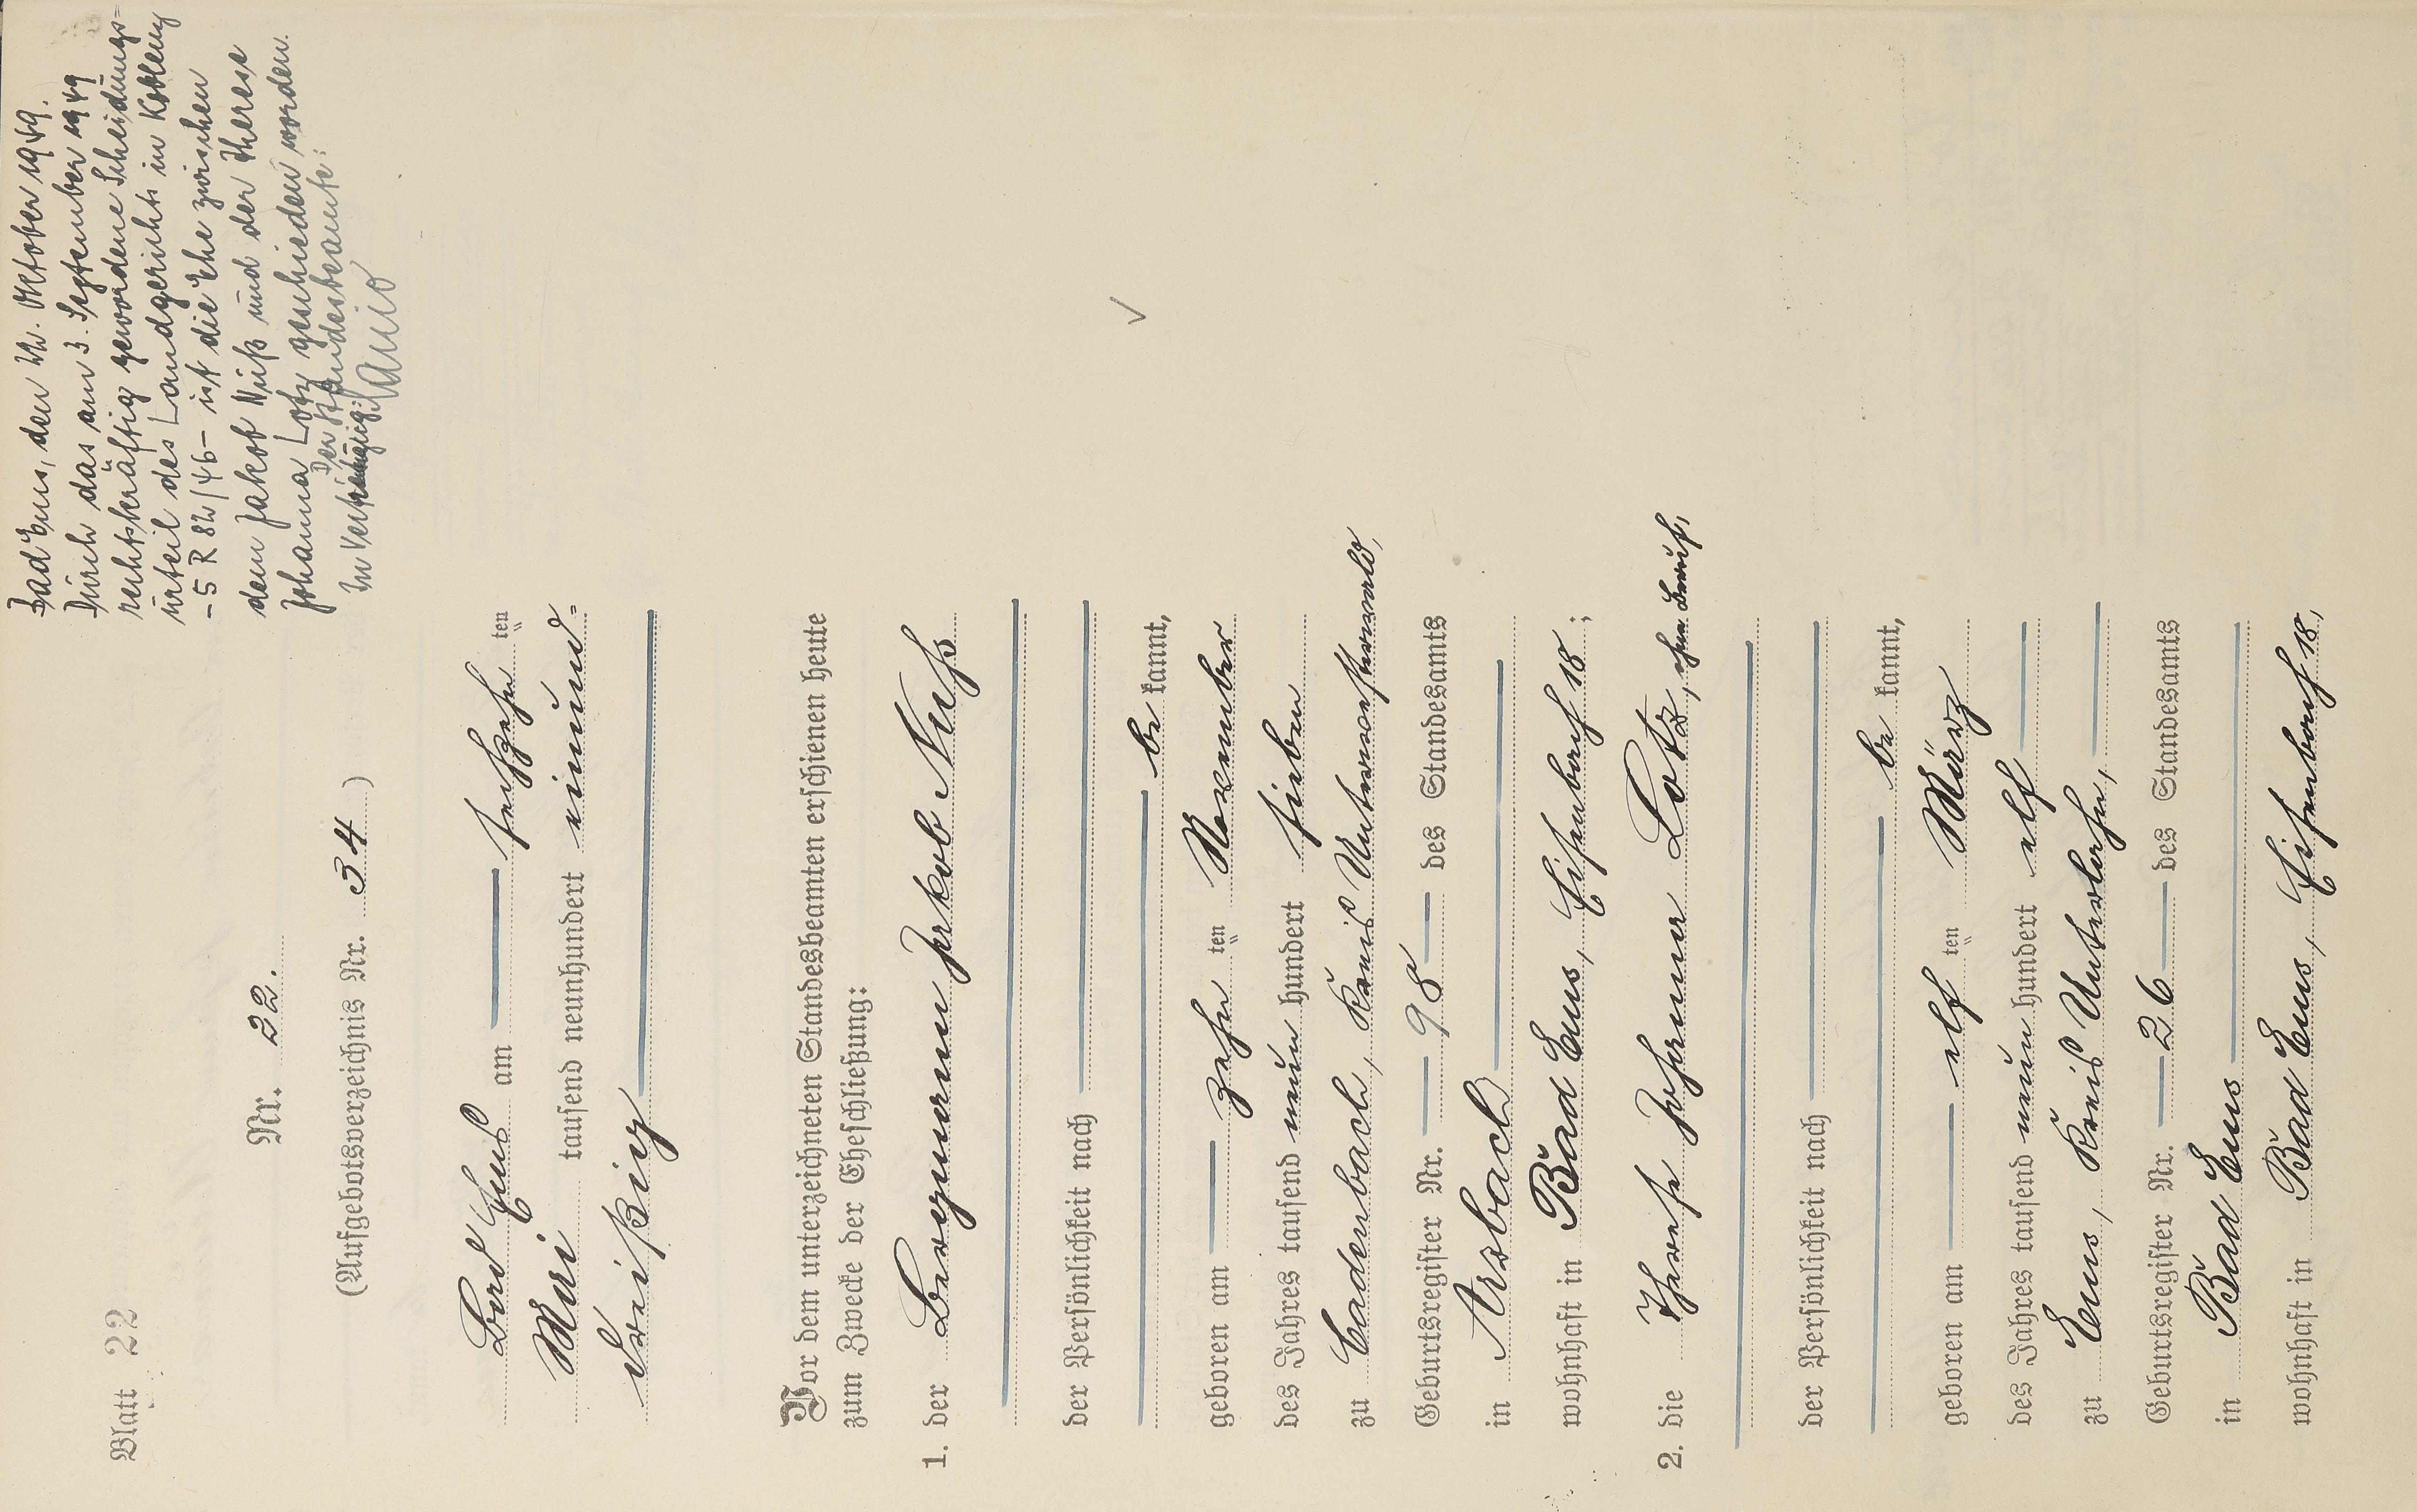 Blatt 22
Bad Ems, den 22. Oktober 1949.
Durch das am 3. September 1949
rechtskräftig gewordene Scheidungs-
urteil des Landgerichts in Koblenz
- 5 R 82/46 - ist die Ehe zwischen
dem Jakob Nuß und der Therese
Johanna Lotz geschieden worden.
Der Standesbeamte:
In Vertretung:
Nr. 22.
(Aufgebotsverzeichnis Nr. 34)
Bad Ems am sechzehn ten
Mai tausend neunhundert einund-
dreißig
Vor dem unterzeichneten Standesbeamten erschienen heute
zum Zwecke der Eheschließung:
1. der Bergmann Jakob Nuß
der Persönlichkeit nach
be kannt,
geboren am zehn ten November
des Jahres tausend neun hundert sieben
zu Cadenbach, Kreis Unterwesterwald,
Geburtsregister Nr. 98 des Standesamts
in Arzbach
wohnhaft in Bad Ems, Eisenbach 18;
2. die Therese Johanna Lotz, ohne Beruf,
der Persönlichkeit nach
be kannt,
geboren am elf ten März
des Jahres tausend neun hundert elf
zu Ems, Kreis Unterlahn,
Geburtsregister Nr. 26 des Standesamts
in Bad Ems
wohnhaft in Bad Ems, Eisenbach 18,